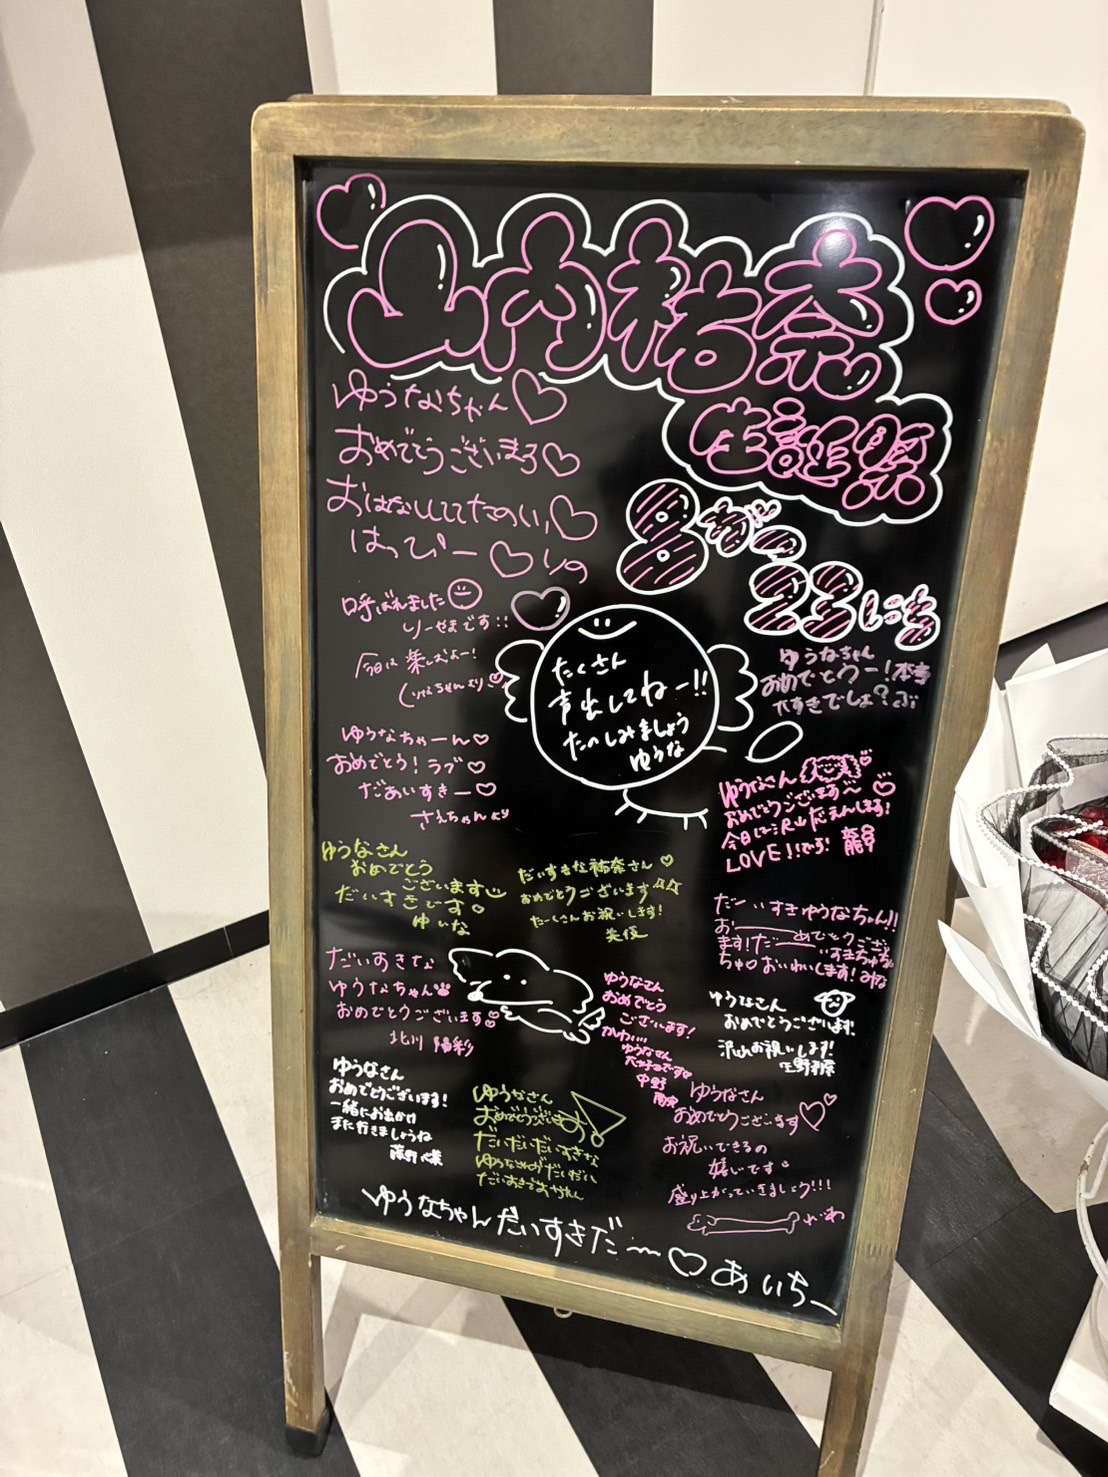 山内祐奈
生誕祭
8がつ
23にち
ゆうなちゃん♡
おめでとうございまする♡
おはなししててたのしい♡
はっぴー♡りの
呼ばれました
りーせまです!!
今日は楽しむよー!
ゆうなちゃーん♡
おめでとう!ラブ♡
だあいすきー♡
さえちゃんより
たくさん
声出してねー!!
たのしみましょう
ゆうな
ゆうなちゃん
おめでとうー!本当
大すきでしょ?
ゆうなさん
おめでとうございます
今日は沢山だえんします!
LOVE!!です!
ゆうなさん
おめでとう
ございます
だいすきです♡
ゆいな
だいすきな祐奈さん♡
おめでとうございます☆☆
たーくさんお祝いします!
美優
だーいすきゆうなちゃん!!
お――めでとうござい
ます!だ――いすきちゅちゅ
ちゅ♡おいわいします!みな
だいすきな
ゆうなちゃん
おめでとうございます
北川 陽彩
ゆうなさん
おめでとう
ございます!
かわいい
ゆうなさん
大好きです♡
中野
ゆうなさん
おめでとうございます!
沢山お祝いします!
ゆうなさん
おめでとうございまする!
一緒にお出かけ
また行きましょうね
藤野心葉
ゆうなさん
おめでとうございます
だいだいだいすきな
ゆうなさんがだいだい
ゆうなさん
おめでとうございます♡
お祝いできるの
嬉しいです
盛り上がっていきましょう!!!
ゆうなちゃんだいすきだ〜♡あいちー